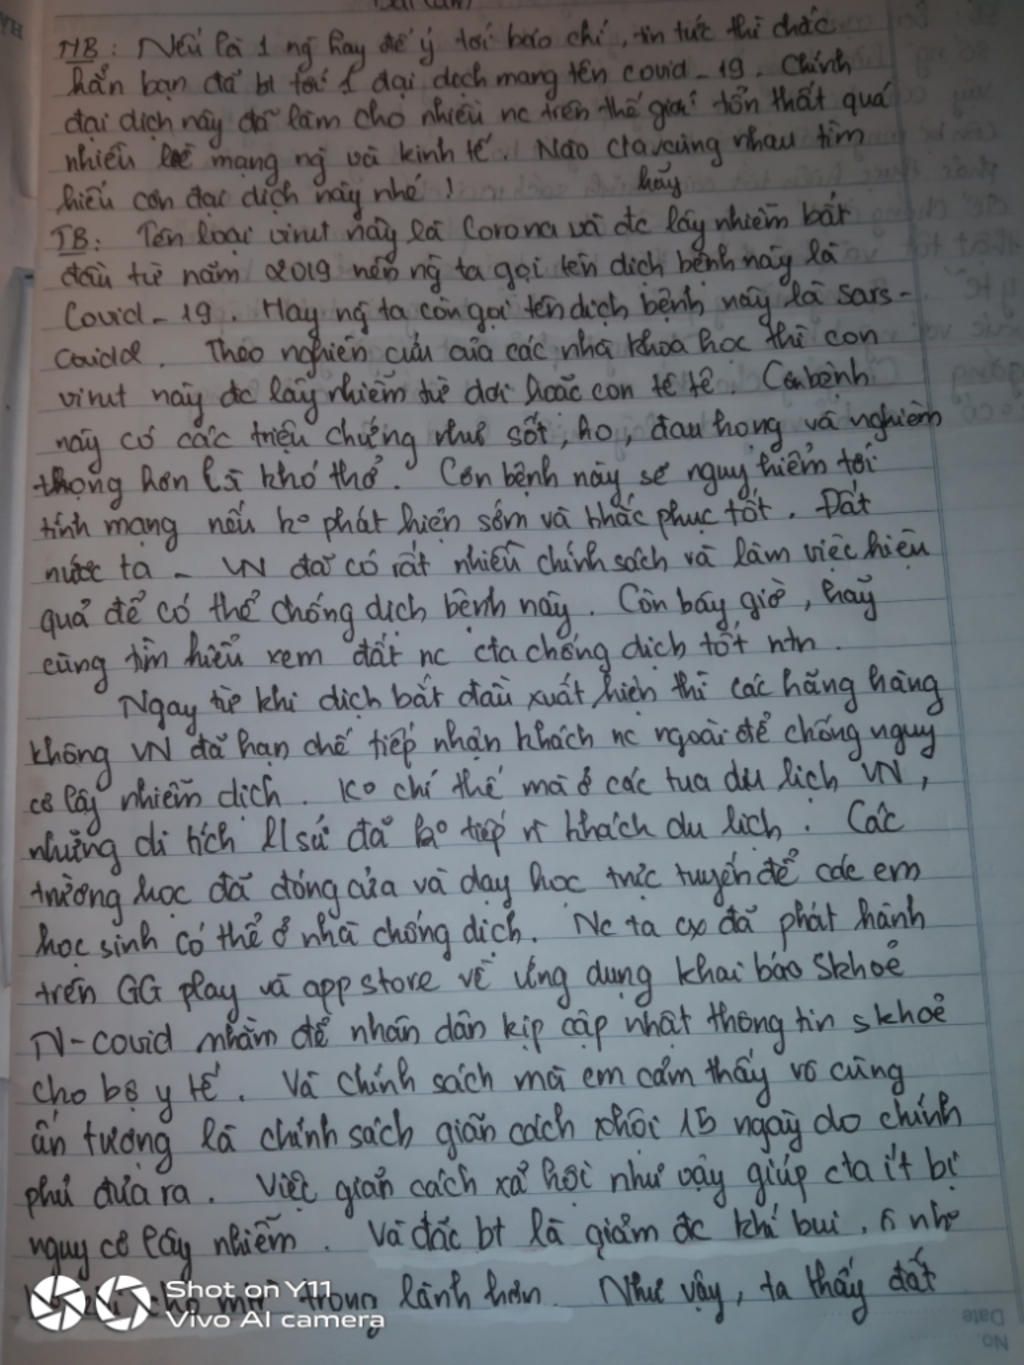 MB: Nếu là 1 ng hay để ý tới báo chí, tin tức thì chắc
hẳn bạn đã bt tới 1 đại dịch mang tên covid-19. Chính
đại dịch này đã làm cho nhiều nc trên thế giới tổn thất quá
nhiều mạng ng và kinh tế. Nào cta cùng nhau tìm
hiểu cơn đại dịch này nhé! hãy
TB: Tên loại virut này là Corona và đc lây nhiễm bắt
đầu từ năm 2019 nên ng ta gọi tên dịch bệnh này là
Covid-19. Hay ng ta còn gọi tên dịch bệnh này là sars-
Theo nghiên cứu của các nhà khoa học thì con
virut này đc lây nhiễm từ dơi hoặc con tê tê. Căn bệnh
này có các triệu chứng như sốt, ho, đau họng và nghiêm
trọng hơn là khó thở. Cơn bệnh này sẽ nguy hiểm tới
tính mạng nếu ko phát hiện sớm và khắc phục tốt. Đất
nước ta - VN đã có rất nhiều chính sách và làm việc hiệu
quả để có thể chống dịch bệnh này. Còn bây giờ, hãy
cùng tìm hiểu xem đất nc cta chống dịch tốt ntn.
Ngay từ khi dịch bắt đầu xuất hiện thì các hãng hàng
không VN đã hạn chế tiếp nhận khách nc ngoài để chống nguy
cơ lây nhiễm dịch. Ko chỉ thế mà ở các tua du lịch VN,
những di tích lsử đã ko tiếp khách du lịch. Các
trường học đã đóng cửa và dạy học trực tuyến để các em
học sinh có thể ở nhà chống dịch. Nc ta cx đã phát hành
trên GG play và app store về ứng dụng khai báo skhoẻ
N-covid nhằm để nhân dân kịp cập nhật thông tin skhoẻ
cho bộ y tế. Và chính sách mà em cảm thấy vô cùng
ấn tượng là chính sách giãn cách xhội 15 ngày do chính
phủ đưa ra. Việc giãn cách xã hội như vậy giúp cta ít bị
nguy cơ lây nhiễm. Và đặc bt là giảm đc khí bụi,
trong lành hơn. Như vậy, ta thấy đất
Shot on Y11
Vivo AI camera
Date
No.